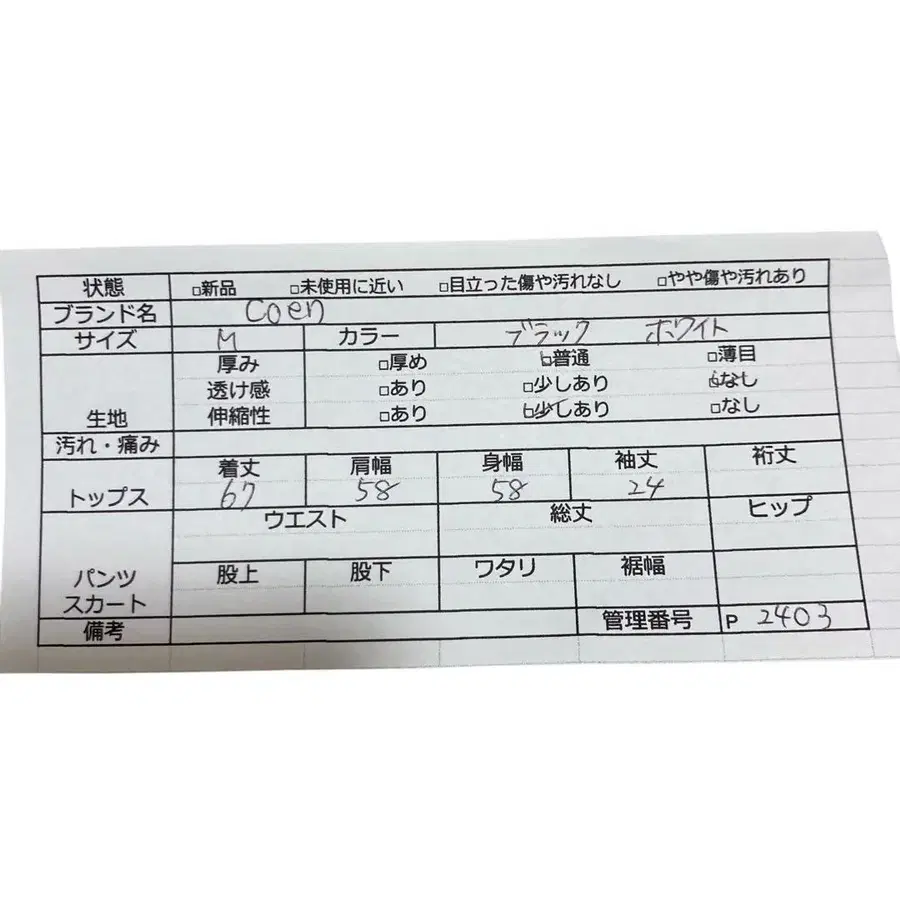 状態 □新品 □未使用に近い □目立った傷や汚れなし □やや傷や汚れあり
ブランド名 coen
サイズ M カラー ブラック ホワイト
厚み □厚め □普通 □薄目
透け感 □あり □少しあり □なし
生地 伸縮性 □あり □少しあり □なし
汚れ・痛み
着丈 肩幅 身幅 袖丈 裄丈
トップス 67 58 58 24
ウエスト 総丈 ヒップ
パンツ 股上 股下 ワタリ 裾幅
スカート
備考 管理番号 P 2403